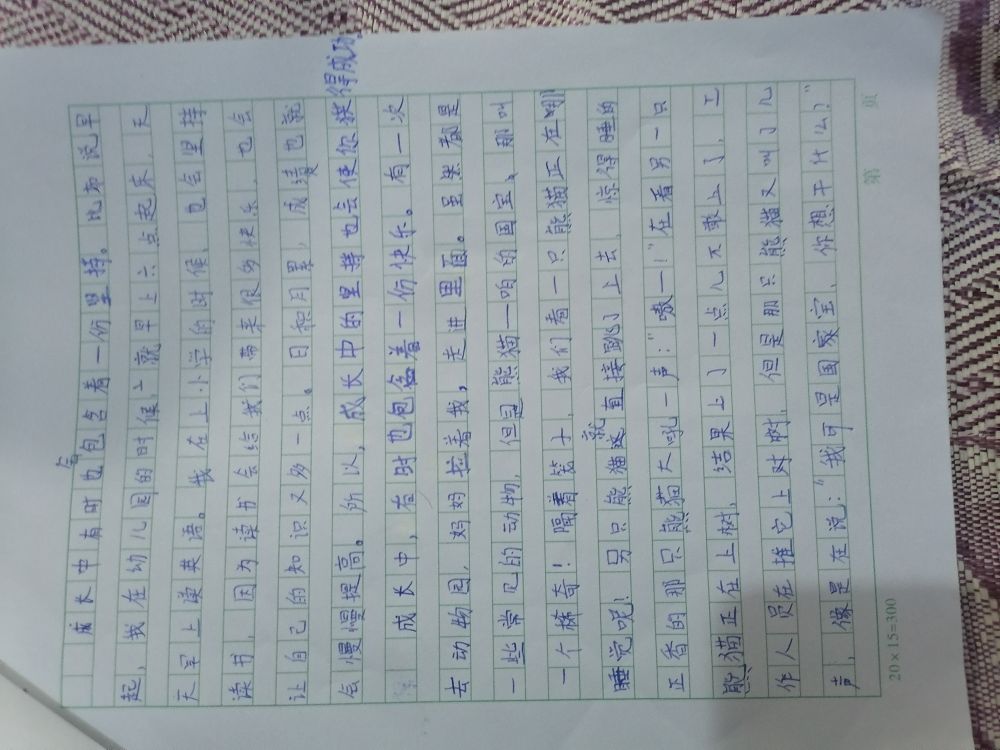 成长中有时也会包含着一份坚持。比如说早
起,我在幼儿园的时候,就早上六点起来,天
天早上读英语。我在上小学的时候,也会坚持
读书,因为读书会给我们带来很多快乐,也会
让自己的知识又多一点。日积月累,成绩也就
会慢慢提高。所以,成长中的坚持也会使你获得成功。
成长中,有时也包含着一份快乐。有一次
去动物园,妈妈拉着我,走进里面。里面都是
一些常见的动物,但是熊猫—咱的国宝,那叫
一个稀奇!隔着笼子,我们看一只熊猫正在
睡觉呢!另只只熊猫就直接跳了上去,惊得睡的
正香的那只熊猫大吼一声:“嗷—!”在看另一只
熊猫正在上树,结果上了一点儿不敢上了,工
作人员在推它上对树,但是那只熊猫又叫了几
声,像是在说:“我可是国家宝,你想干什么?”
20×15=300
第 页